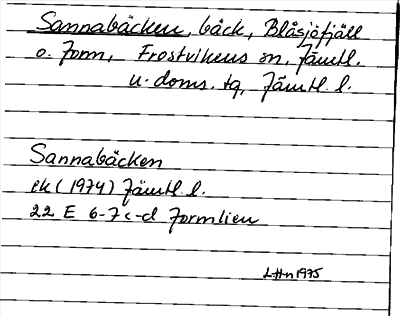 Sannabäcken, bäck, Blåsjöfjäll
o. Form, Frostvikens sn, Jämtl.
n. doms. tg, Jämtl. l.
Sannabäcken
ek (1974) Jämtl. l.
22 E 6-7 c-d Formlien
1975